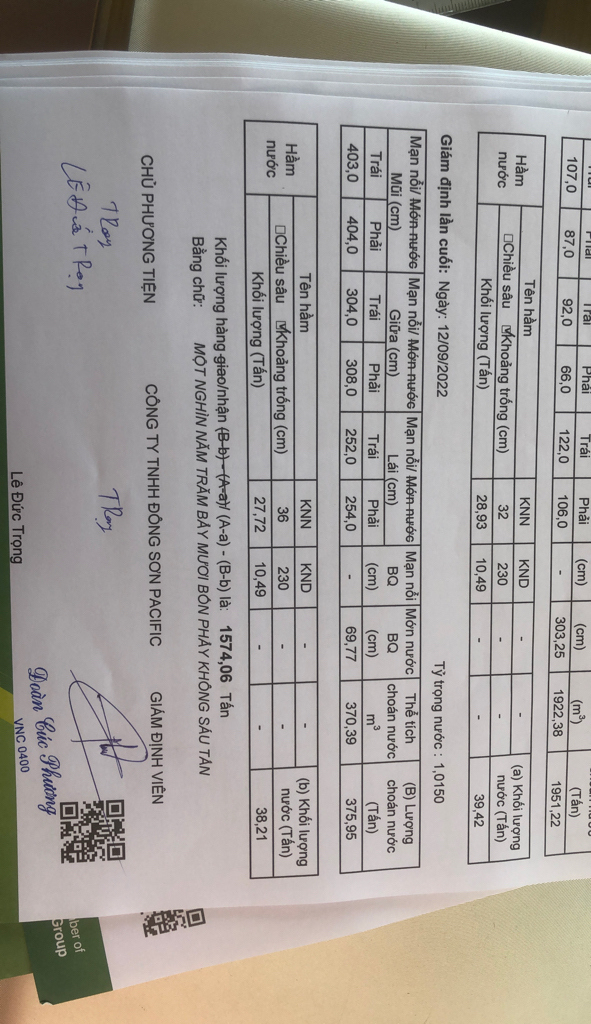 Trái Phải Trái Phải Trái Phải (cm) (cm) (m³) (Tấn)
107,0 87,0 92,0 66,0 122,0 106,0 - 303,25 1922,38 1951,22
Hầm nước Tên hầm KNN KND - - (a) Khối lượng nước (Tấn)
□Chiều sâu ☑Khoảng trống (cm) 32 230 - -
Khối lượng (Tấn) 28,93 10,49 - - 39,42
Giám định lần cuối: Ngày: 12/09/2022 Tỷ trọng nước : 1,0150
Mạn nổi/ Mớn nước Mũi (cm) Mạn nổi/ Mớn nước Giữa (cm) Mạn nổi/ Mớn nước Lái (cm) Mạn nổi BQ (cm) Mớn nước BQ (cm) Thể tích choán nước m³ (B) Lượng choán nước (Tấn)
Trái Phải Trái Phải Trái Phải
403,0 404,0 304,0 308,0 252,0 254,0 - 69,77 370,39 375,95
Hầm nước Tên hầm KNN KND - - (b) Khối lượng nước (Tấn)
□Chiều sâu ☑Khoảng trống (cm) 36 230 - -
Khối lượng (Tấn) 27,72 10,49 - - 38,21
Khối lượng hàng giao/nhận (B-b) - (A-a)/ (A-a) - (B-b) là: 1574,06 Tấn
Bằng chữ: MỘT NGHÌN NĂM TRĂM BẢY MƯƠI BỐN PHẨY KHÔNG SÁU TẤN
CHỦ PHƯƠNG TIỆN CÔNG TY TNHH ĐÔNG SƠN PACIFIC GIÁM ĐỊNH VIÊN
TRọng TRọng
Lê Đức TRọng
Đoàn Cúc Phương
VNC 0400
Lê Đức Trọng
ber of
Group